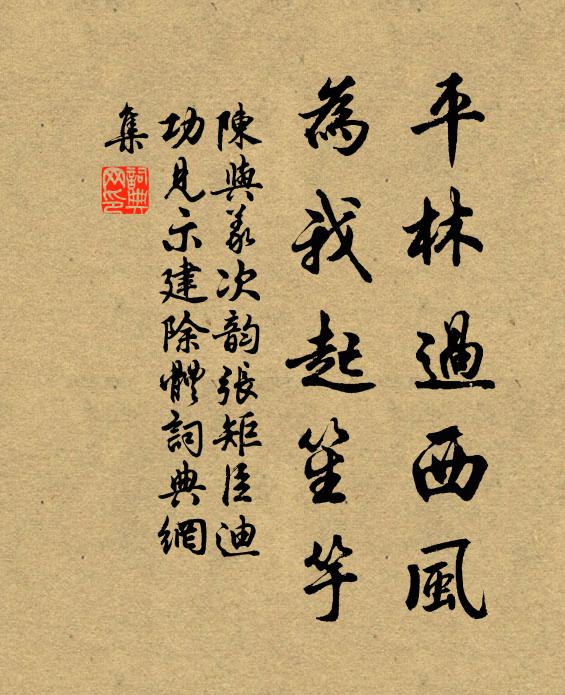 平林過西風
為我起笙竽
陳與義次韵張矩臣迪
功見示建除體詞典網
集
詞典
网印